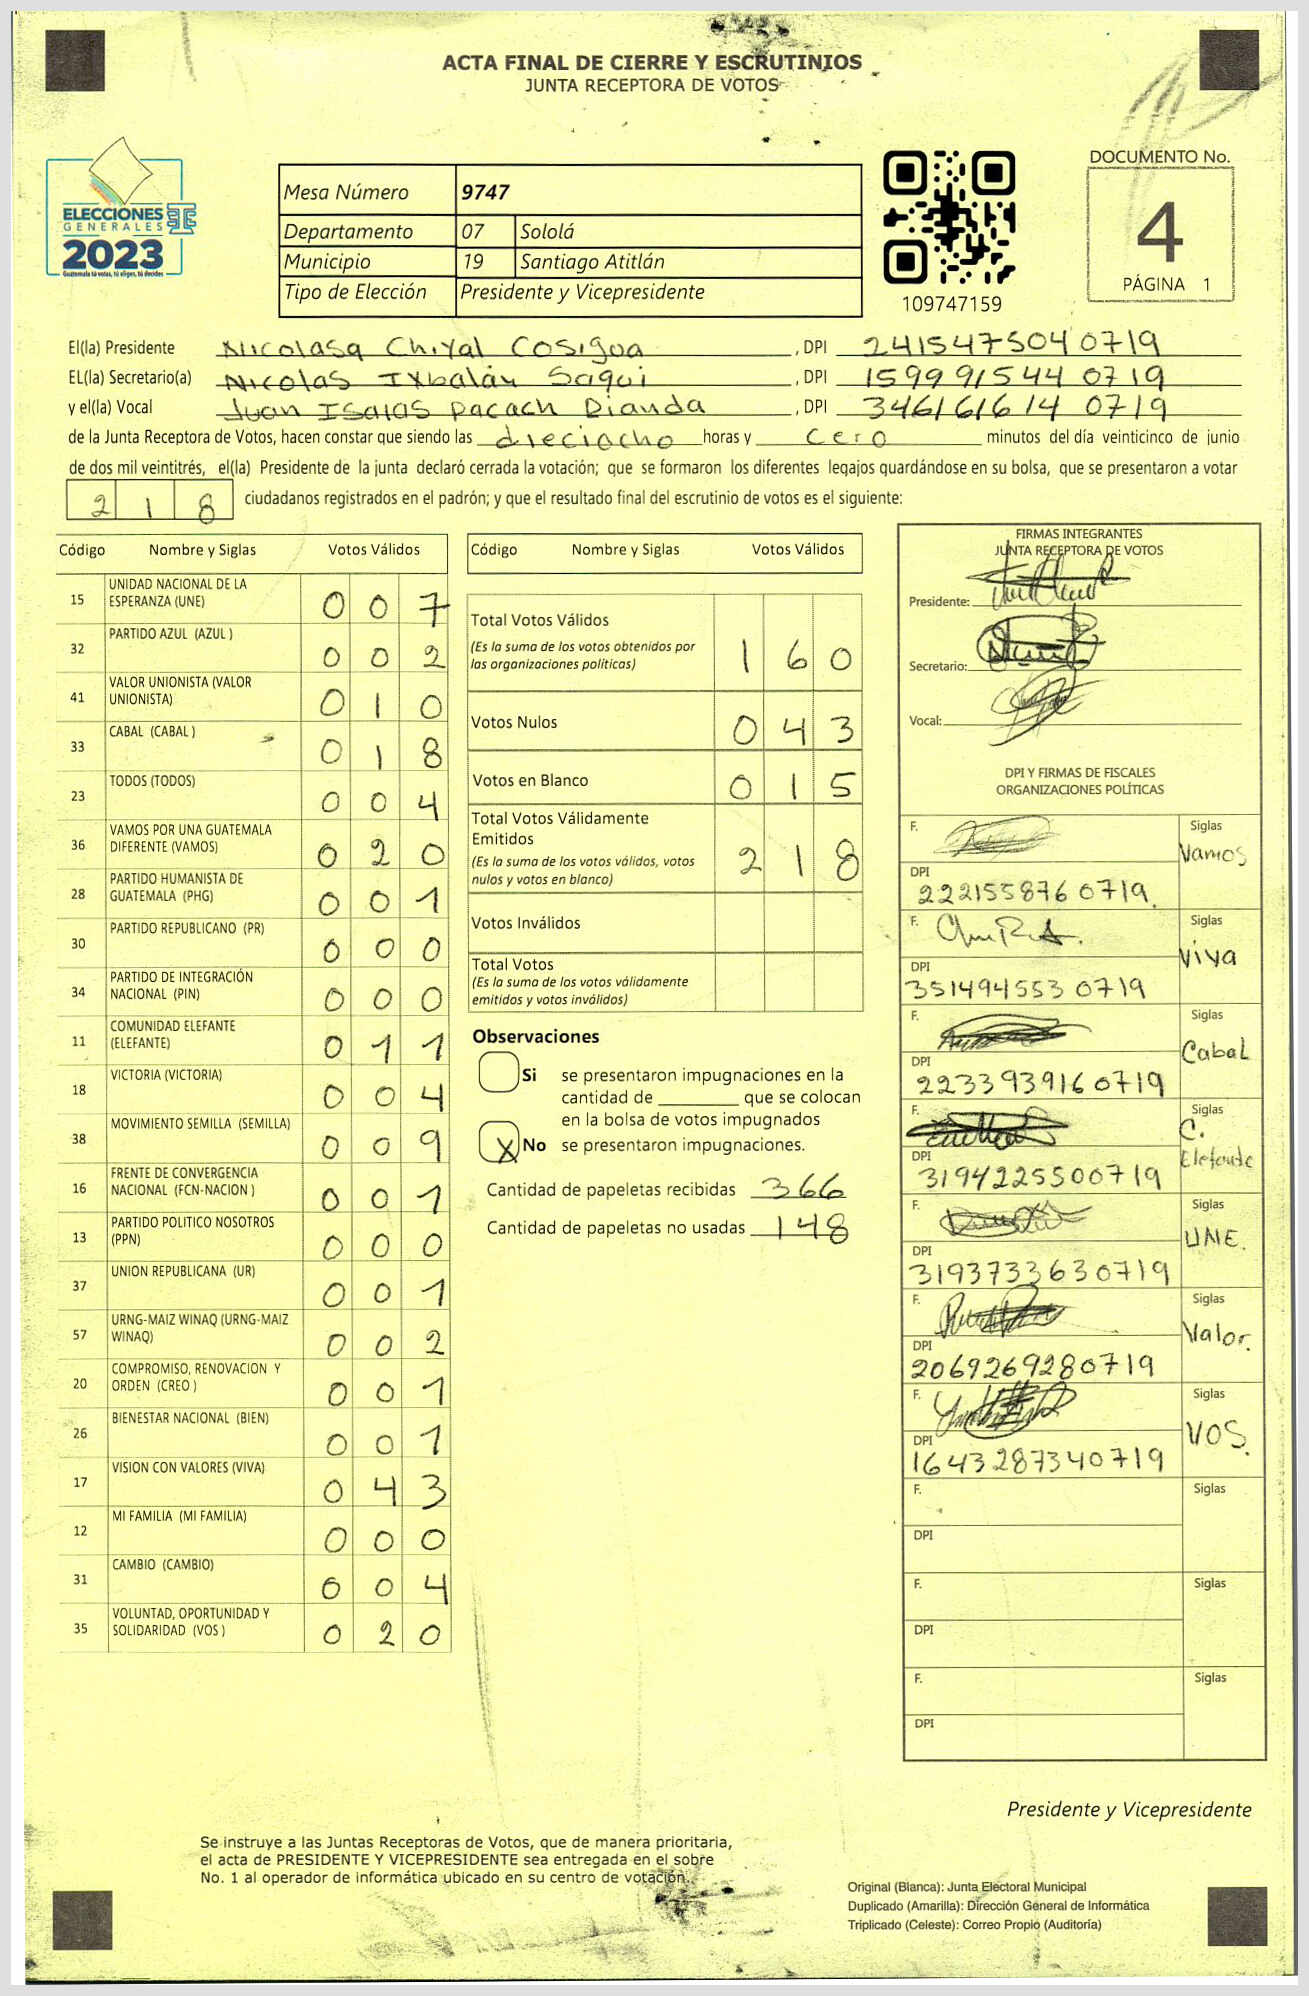 ACTA FINAL DE CIERRE Y ESCRUTINIOS
JUNTA RECEPTORA DE VOTOS
ELECCIONES
GENERALES
2023
Guatemala tú votas, tú eliges, tú decides
Mesa Número 9747
Departamento 07 Sololá
Municipio 19 Santiago Atitlán
Tipo de Elección Presidente y Vicepresidente
109747159
DOCUMENTO No.
4
PÁGINA 1
El(la) Presidente Nicolasa Chiyal Cosigua , DPI 2415475040719
EL(la) Secretario(a) Nicolas Ixbalán Saqui , DPI 1599915440719
y el(la) Vocal Juan Isaias Pacach Dianda , DPI 3461616140719
de la Junta Receptora de Votos, hacen constar que siendo las dieciocho horas y cero minutos del día veinticinco de junio
de dos mil veintitrés, el(la) Presidente de la junta declaró cerrada la votación; que se formaron los diferentes legajos quardándose en su bolsa, que se presentaron a votar
218 ciudadanos registrados en el padrón; y que el resultado final del escrutinio de votos es el siguiente:
Código Nombre y Siglas Votos Válidos
15 UNIDAD NACIONAL DE LA ESPERANZA (UNE) 007
32 PARTIDO AZUL (AZUL ) 002
41 VALOR UNIONISTA (VALOR UNIONISTA) 010
33 CABAL (CABAL ) 018
23 TODOS (TODOS) 004
36 VAMOS POR UNA GUATEMALA DIFERENTE (VAMOS) 020
28 PARTIDO HUMANISTA DE GUATEMALA (PHG) 001
30 PARTIDO REPUBLICANO (PR) 000
34 PARTIDO DE INTEGRACIÓN NACIONAL (PIN) 000
11 COMUNIDAD ELEFANTE (ELEFANTE) 011
18 VICTORIA (VICTORIA) 004
38 MOVIMIENTO SEMILLA (SEMILLA) 009
16 FRENTE DE CONVERGENCIA NACIONAL (FCN-NACION ) 001
13 PARTIDO POLITICO NOSOTROS (PPN) 000
37 UNION REPUBLICANA (UR) 001
57 URNG-MAIZ WINAQ (URNG-MAIZ WINAQ) 002
20 COMPROMISO, RENOVACION Y ORDEN (CREO ) 001
26 BIENESTAR NACIONAL (BIEN) 001
17 VISION CON VALORES (VIVA) 043
12 MI FAMILIA (MI FAMILIA) 000
31 CAMBIO (CAMBIO) 004
35 VOLUNTAD, OPORTUNIDAD Y SOLIDARIDAD (VOS ) 020
Código Nombre y Siglas Votos Válidos
Total Votos Válidos 160
(Es la suma de los votos obtenidos por
las organizaciones políticas)
Votos Nulos 043
Votos en Blanco 015
Total Votos Válidamente
Emitidos 218
(Es la suma de los votos válidos, votos
nulos y votos en blanco)
Votos Inválidos
Total Votos
(Es la suma de los votos válidamente
emitidos y votos inválidos)
Observaciones
Si se presentaron impugnaciones en la
cantidad de ________ que se colocan
en la bolsa de votos impugnados
X No se presentaron impugnaciones.
Cantidad de papeletas recibidas 366
Cantidad de papeletas no usadas 148
FIRMAS INTEGRANTES
JUNTA RECEPTORA DE VOTOS
Presidente:
Secretario:
Vocal:
DPI Y FIRMAS DE FISCALES
ORGANIZACIONES POLÍTICAS
F. Siglas Vamos
DPI 2221558760719.
F. Siglas Viva
DPI 3514945530719
F. Siglas Cabal
DPI 2233939160719
F. Siglas C. Elefante
DPI 3194225500719
F. Siglas UNE.
DPI 3193733630719
F. Siglas Valor.
DPI 2069269280719
F. Siglas VOS.
DPI 1643287340719
F. Siglas
DPI
F. Siglas
DPI
F. Siglas
DPI
Presidente y Vicepresidente
Se instruye a las Juntas Receptoras de Votos, que de manera prioritaria,
el acta de PRESIDENTE Y VICEPRESIDENTE sea entregada en el sobre
No. 1 al operador de informática ubicado en su centro de votación.
Original (Blanca): Junta Electoral Municipal
Duplicado (Amarilla): Dirección General de Informática
Triplicado (Celeste): Correo Propio (Auditoría)